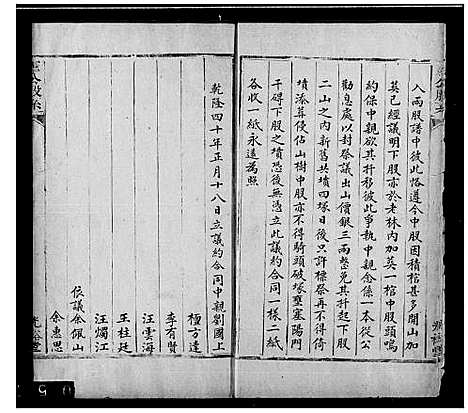 入兩股譜中彼此恪遵今中股因積棺甚多開山加
英已經議明下股亦於老林內加英一棺中股頭嗚
約保中親欲其扦移彼此爭執中親念係一本從公
勸息處以封祭議出山價銀三兩整免其扦起下股
二山之內新舊共墳四塚日後只許標祭再不得倚
墳添葬侵佔山樹中股亦不得騎頭破塚壅塞陽門
干碍下股之墳恐後無憑立此議約合同一樣二紙
各收一紙永遠為照
乾隆四十年正月十八日立議約合同中親劉國上
程方達
李有賢
汪雲海
王柱廷
汪燭江
依議余佩山
余惠思